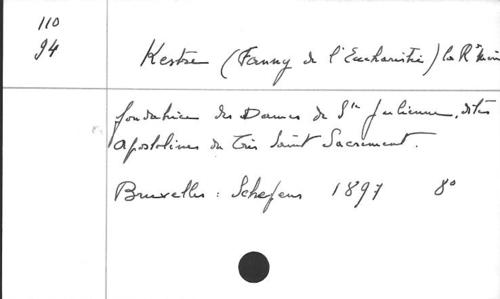 110
94
Kestre (Fanny de l'Eucharistie) la Rde
fondatrice des Dames de Ste Julienne, dites
Apostolines du Très Saint Sacrement.
Bruxelles : Schepens 1897 8°